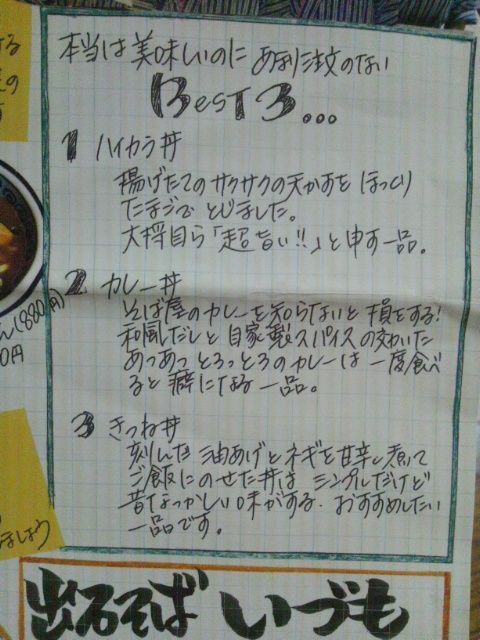 する
の
本当は美味しいのに あまり注文のない
BEST3...
1 ハイカラ丼
揚げたてのサクサクの天かすを ほっくり
たまごで とじました。
大将自ら「超旨い!!」と申す一品。
2 カレー丼
そば屋のカレーを知らないと 損をする!
和風だしと 自家製スパイスの効いた
あっあっ とろっとろのカレーは 一度食べ
ると 癖になる 一品。
3 きつね丼
刻んだ 油あげと ネギを 甘辛く煮て
ご飯にのせた丼は シンプルだけど
昔なつかしい味がする. おすすめしたい
一品です。
ん(880円)
0円
ましょう
出石そば いづも